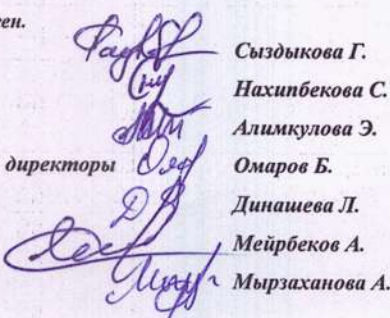 ген.
Сыздыкова Г.
Нахипбекова С.
Алимкулова Э.
директоры Омаров Б.
Динашева Л.
Мейрбеков А.
Мырзаханова А.